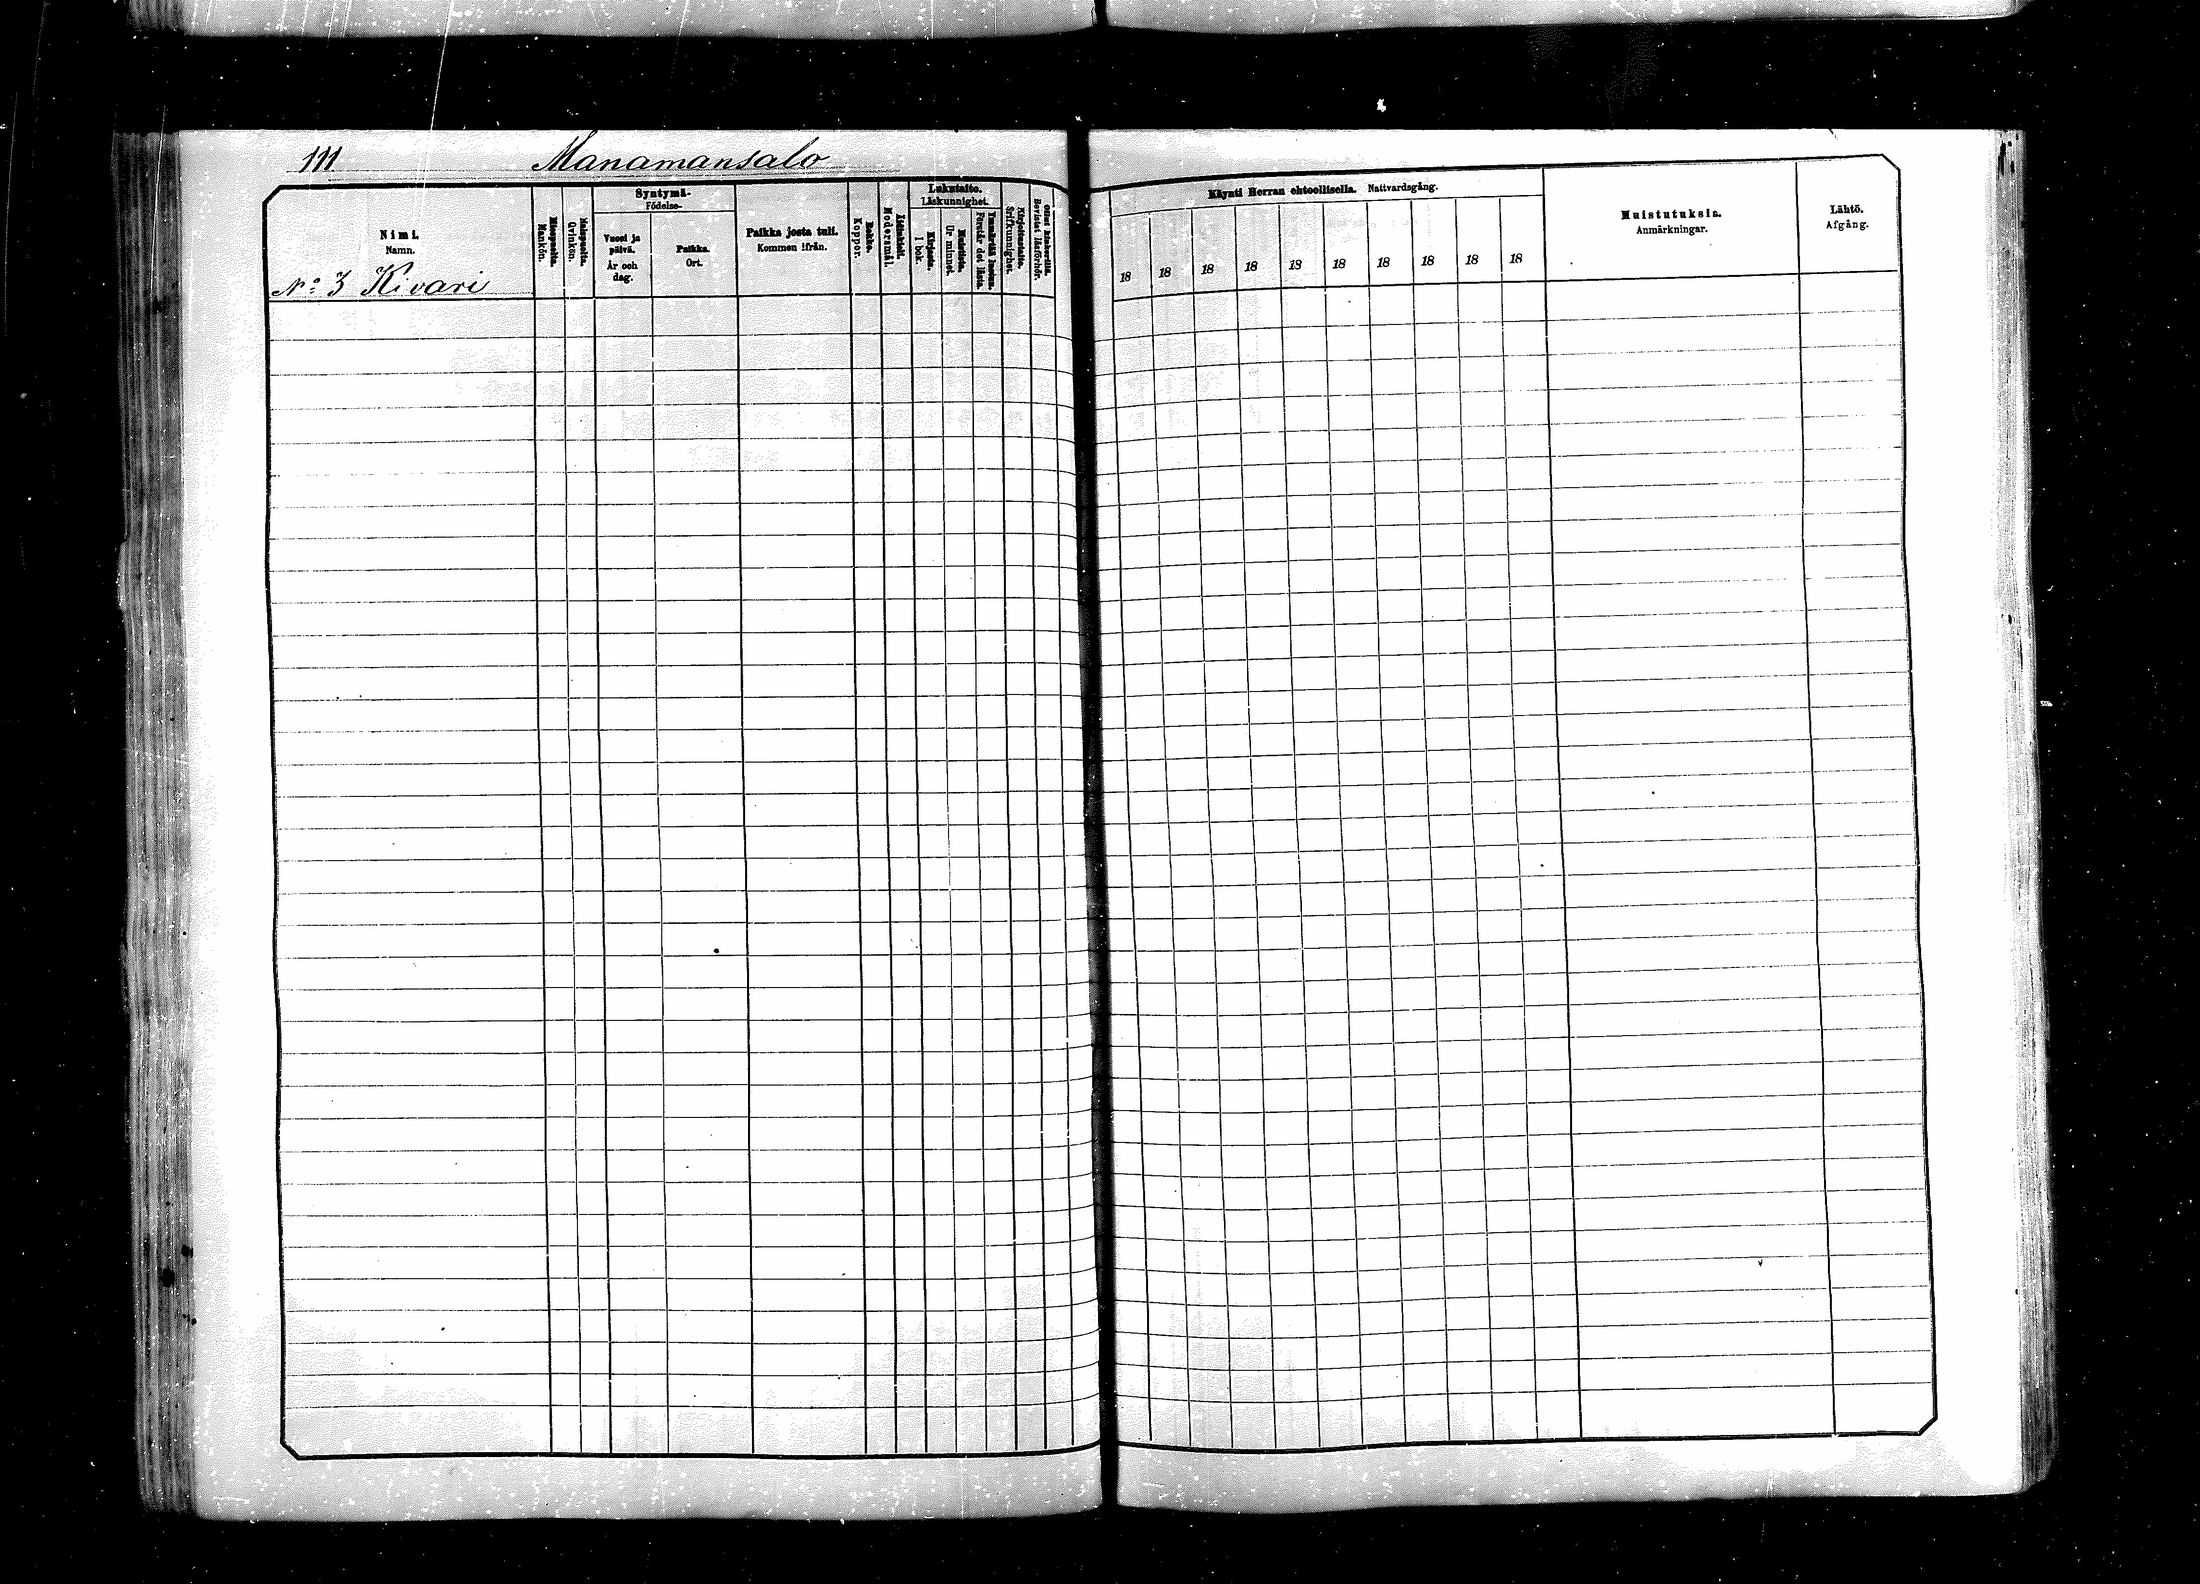 111 Manamansalo
Nimi.
Namn.
No 3 Kivari
Miespuolia.
Mankön.
Naispuolia.
Qvinkön.
Syntymä-
Födelse-
Vuosi ja
päivä.
År och
dag.
Paikka.
Ort.
Paikka josta tuli.
Kommen ifrån.
Rokko.
Koppor.
Äidinkieli.
Modersmål.
Lukutaito.
Läskunnighet.
Kirjasta.
I bok.
Muistista.
Ur minnet.
Ymmärtää luetun.
Förstår det lästa.
Kirjoitustaito.
Skrifkunnighet.
Ollut kinkerillä.
Bevistat läsförhör.
Käynti Herran ehtoollisella. Nattvardsgång.
18 18 18 18 18 18 18 18 18 18
Muistutuksia.
Anmärkningar.
Lähtö.
Afgång.